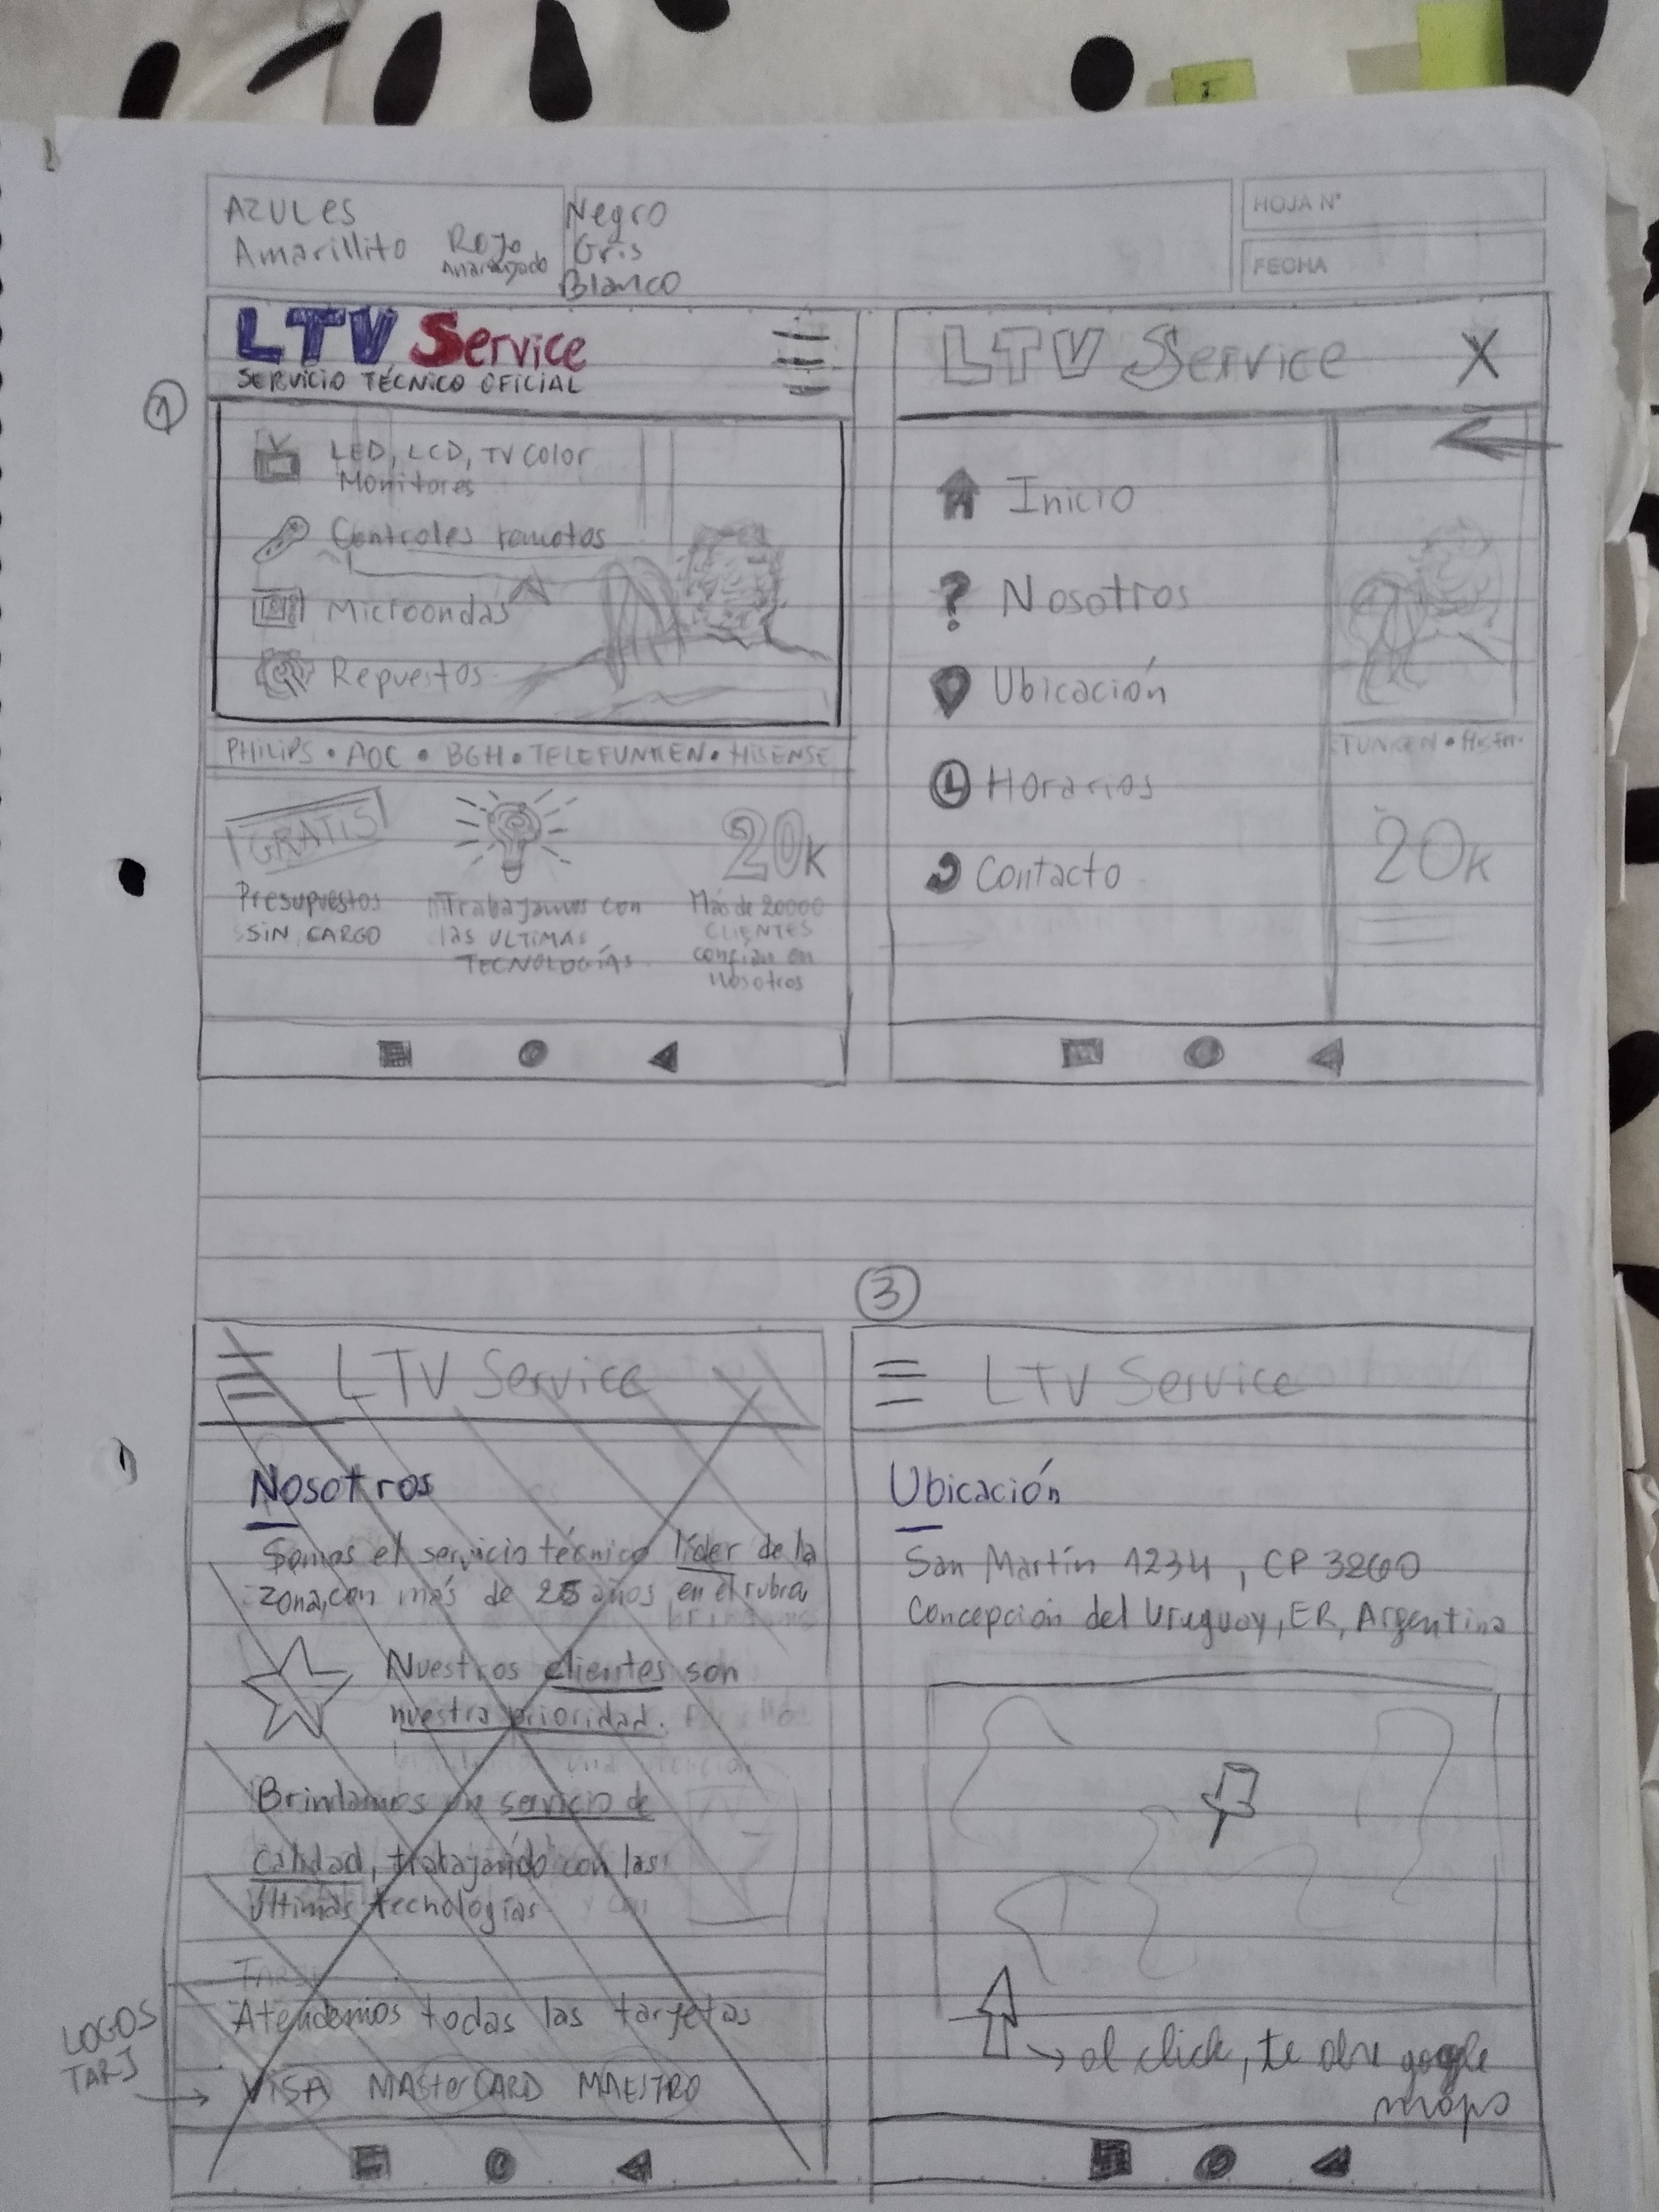 AZULES
Amarillito
Rojo
Anaranjado
Negro
Gris
Blanco
HOJA N°
FECHA
1
LTV Service
SERVICIO TÉCNICO OFICIAL
LED, LCD, TV Color
Monitores
Controles remotos
Microondas
Repuestos
PHILIPS • AOC • BGH • TELEFUNKEN • HISENSE
GRATIS
Presupuestos
SIN CARGO
Trabajamos con
las ULTIMAS
TECNOLOGÍAS
20K
Más de 20000
CLIENTES
confían en
nosotros
LTV Service X
Inicio
? Nosotros
Ubicación
Horarios
Contacto
20K
LTV Service
Nosotros
Somos el servicio técnico líder de la
zona, con más de 25 años en el rubro
Nuestros clientes son
nuestra prioridad.
Brindamos un servicio de
calidad, trabajando con las
últimas tecnologías
Atendemos todas las tarjetas
LOGOS
TARJ
VISA MASterCARD MAESTRO
3
LTV Service
Ubicación
San Martín 1234, CP 3260
Concepción del Uruguay, ER, Argentina
al click, te abre google
maps